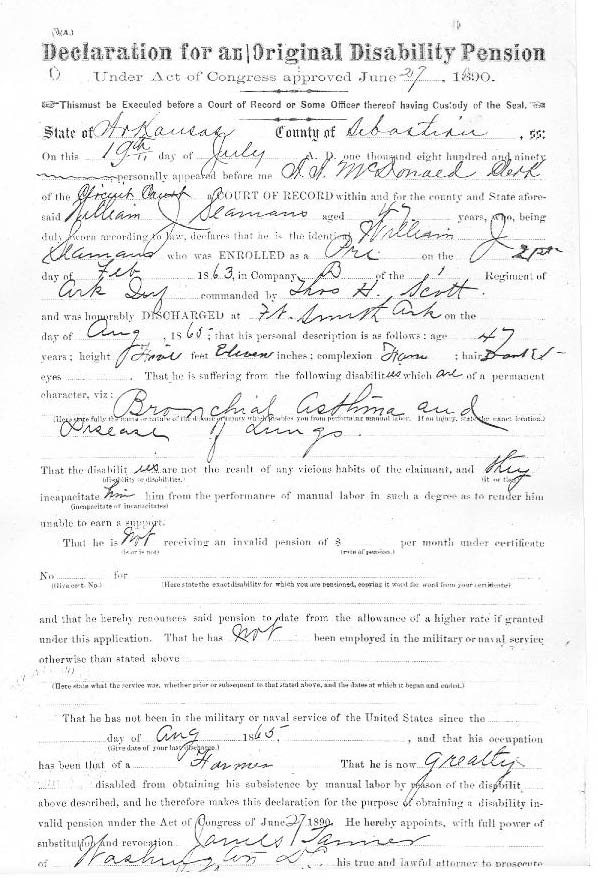 (W.A.)
Declaration for an Original Disability Pension
Under Act of Congress approved June 27, 1890.
This must be Executed before a Court of Record or Some Officer thereof having Custody of the Seal.
State of Arkansas County of Sebastian, ss:
On this 19th day of July A. D. one thousand eight hundred and ninety
personally appeared before me McDonald Clerk
of the Circuit Court a COURT OF RECORD within and for the county and State afore-
said William J Seamans aged 47 years, who, being
duly sworn according to law, declares that he is the identical William J
Seamans who was ENROLLED as a Pri on the 21st
day of Feb 1863, in Company B of the 1 Regiment of
Ark Inf commanded by Thos H. Scott.
and was honorably DISCHARGED at Ft. Smith Ark on the
day of Aug, 1865; that his personal description is as follows: age 47
years; height Five feet Eleven inches; complexion ; hair
eyes . That he is suffering from the following disabilities which are of a permanent
character, viz: Bronchial Asthma and
(Here state fully the name or nature of the disease or injury which disables you from performing manual labor. If an injury, state the exact location.)
Disease of Lungs.
That the disabilities are not the result of any vicious habits of the claimant, and they
(disability or disabilities.) (it or they)
incapacitate him him from the performance of manual labor in such a degree as to render him
(incapacitate or incapacitates)
unable to earn a support.
That he is Not receiving an invalid pension of $ per month under certificate
(is or is not) (rate of pension.)
No for
(Give cert. No.) (Here state the exact disability for which you are pensioned, copying it word for word from your certificate)
and that he hereby renounces said pension to date from the allowance of a higher rate if granted
under this application. That he has Not been employed in the military or naval service
otherwise than stated above
(Here state what the service was, whether prior or subsequent to that stated above, and the dates at which it began and ended.)
That he has not been in the military or naval service of the United States since the
day of Aug 1865, , and that his occupation
(Give date of your last discharge.)
has been that of a Farmer That he is now Greatly
disabled from obtaining his subsistence by manual labor by reason of the disabilit
above described, and he therefore makes this declaration for the purpose of obtaining a disability in-
valid pension under the Act of Congress of June 27 1890. He hereby appoints, with full power of
substitution and revocation James Tanner
of Washington D.C. his true and lawful attorney to prosecute